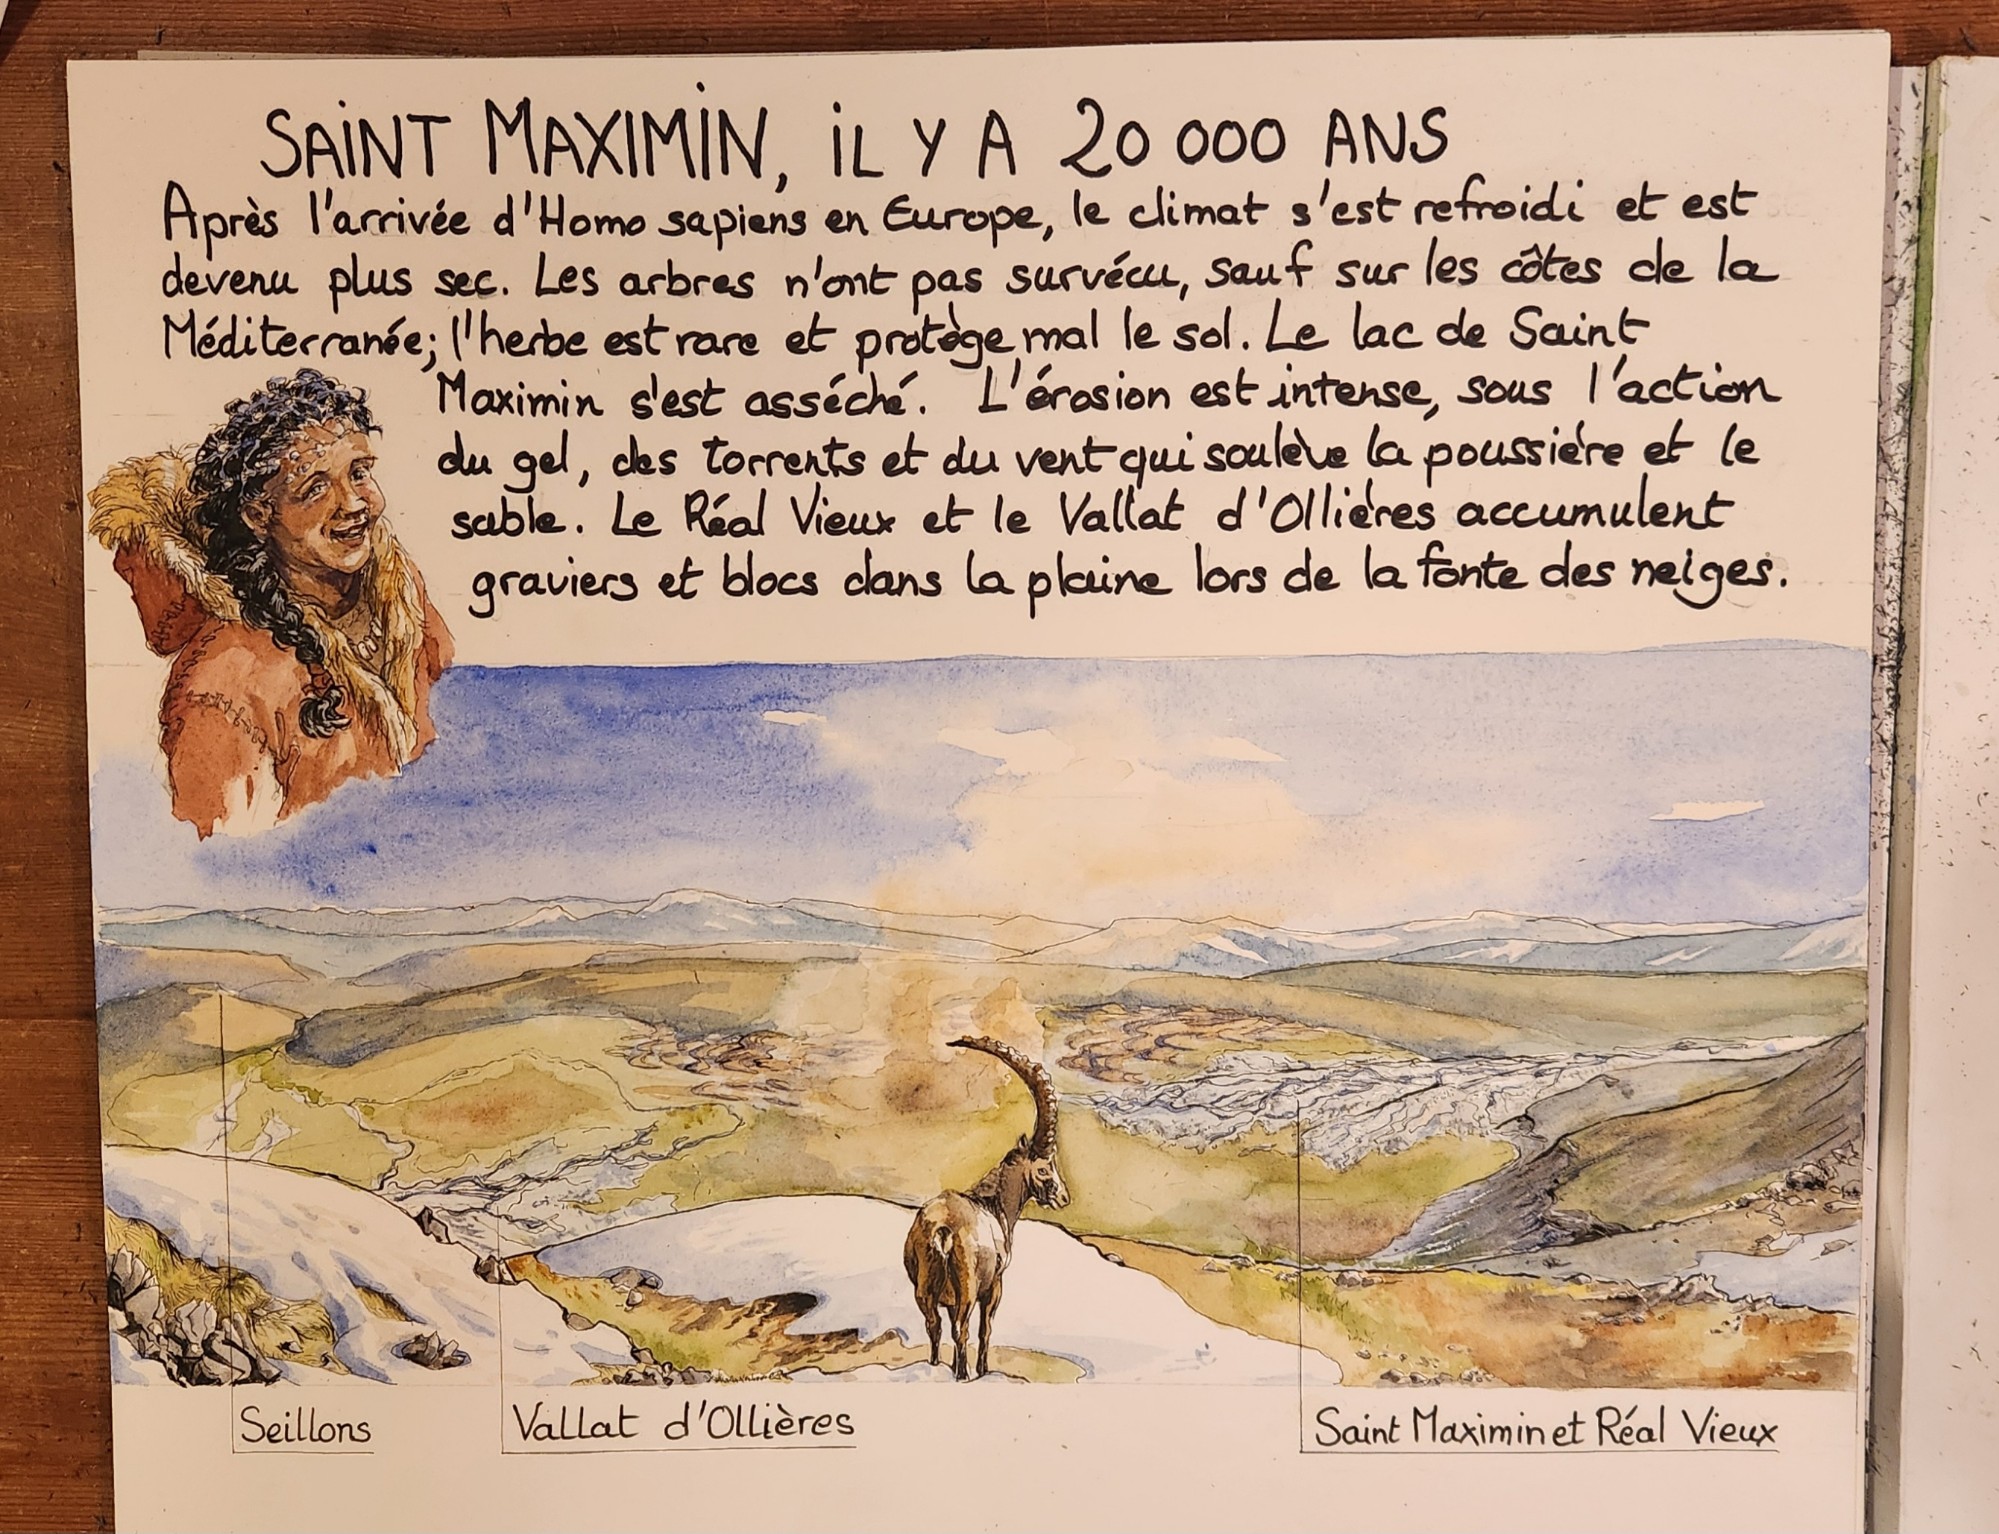 SAINT MAXIMIN, IL Y A 20 000 ANS
Après l'arrivée d'Homo sapiens en Europe, le climat s'est refroidi et est
devenu plus sec. Les arbres n'ont pas survécu, sauf sur les côtes de la
Méditerranée; l'herbe est rare et protège mal le sol. Le lac de Saint
Maximin s'est asséché. L'érosion est intense, sous l'action
du gel, des torrents et du vent qui soulève la poussière et le
sable. Le Réal Vieux et le Vallat d'Ollières accumulent
graviers et blocs dans la plaine lors de la fonte des neiges.
Seillons
Vallat d'Ollières
Saint Maximin et Réal Vieux